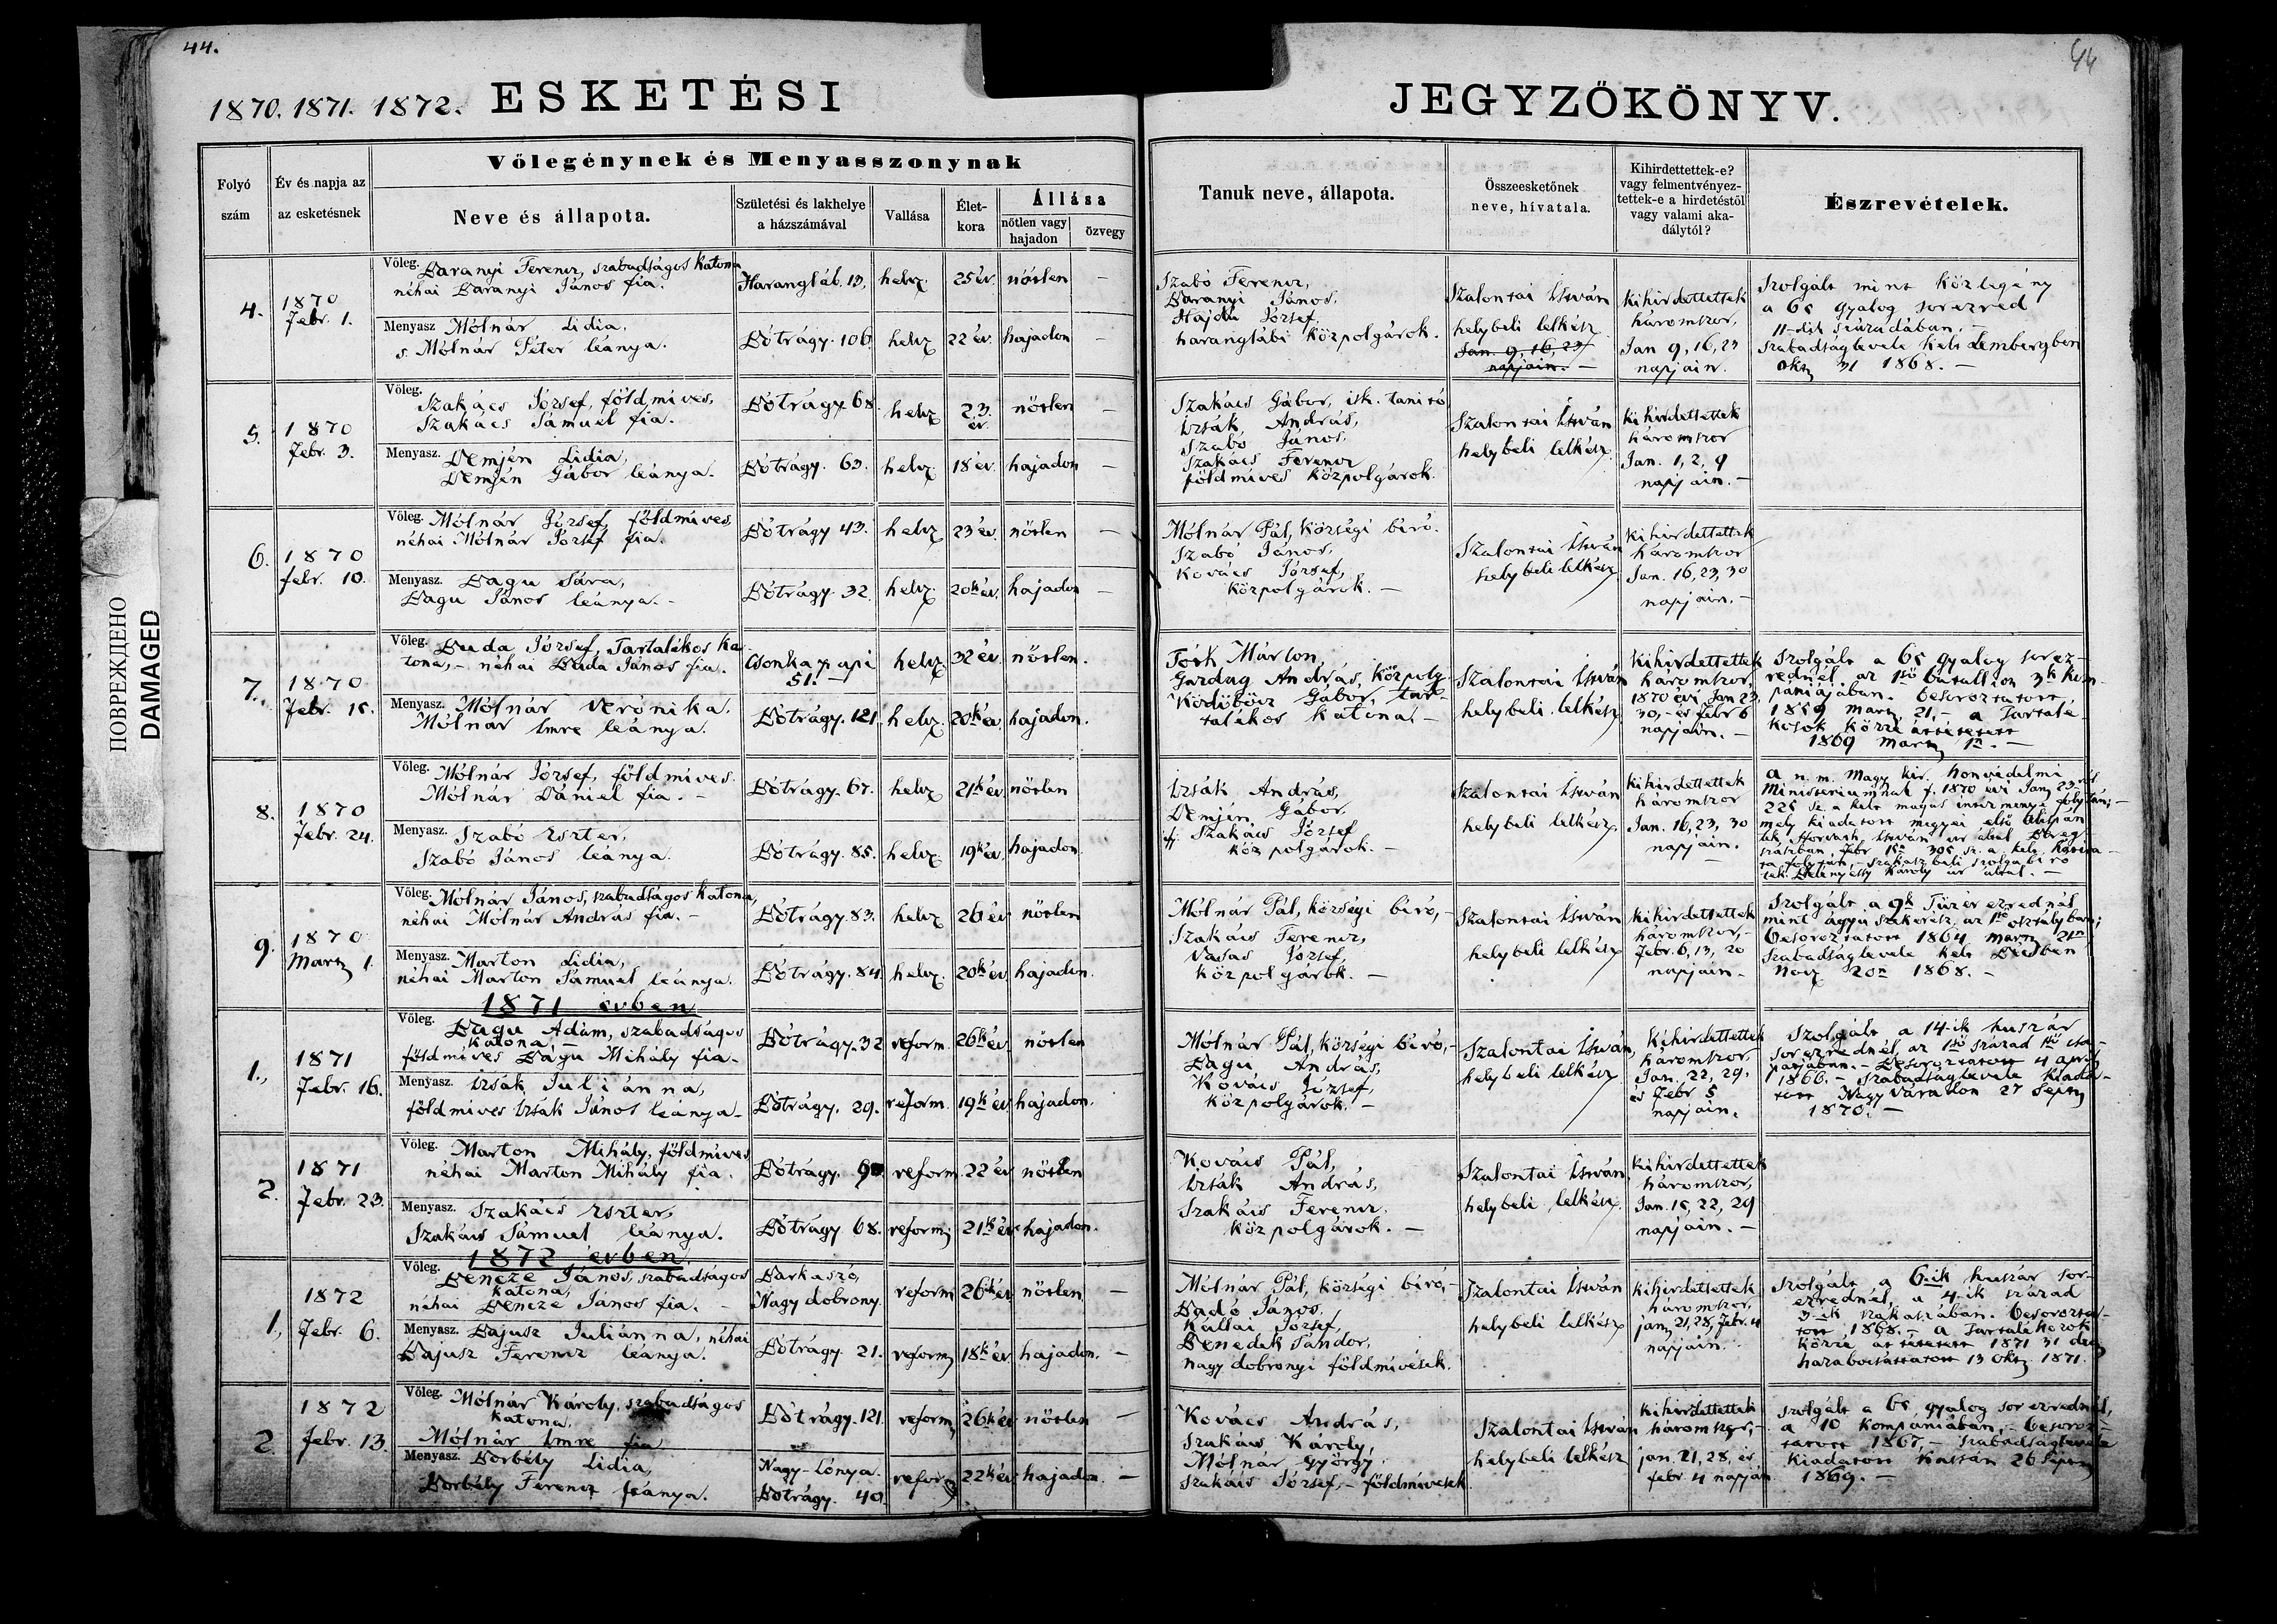 44.
44
1870. 1871. 1872. ESKETÉSI JEGYZŐKÖNYV.
ПОВРЕЖДЕНО
DAMAGED
Folyó szám
Év és napja az az esketésnek
Vőlegénynek és Menyasszonynak
Neve és állapota.
Születési és lakhelye a házszámával
Vallása
Élet-kora
Állása
nőtlen vagy hajadon
özvegy
Tanuk neve, állapota.
Összeesketőnek neve, hívatala.
Kihirdettettek-e? vagy felmentvényez-tettek-e a hirdetéstől vagy valami aka-dálytól?
Észrevételek.
4.
1870
Febr. 1.
Vőleg. Baranyi Ferencz, szabadságos katona
néhai Baranyi János fia.
Harangláb. 13. helv. 25 év. nőtlen —
Menyasz Mólnár Lidia,
s. Mólnár Péter leánya.
Bótrágy. 106 helv. 22 év. hajadon —
Szabó Ferencz,
Baranyi János,
Hajdu József,
haranglábi közpolgárok.
Szalontai István
helybeli lelkész
Jan. 9, 16, 23
napjain. —
kihirdettettek
háromszor,
Jan 9, 16, 23
napjain.
Szolgált mint közlegény
a 65 gyalog sorezred
11-dik századában. —
szabadságlevele kelt Lembergben
okt. 31 1868. —
5.
1870
Febr. 3.
Vőleg. Szakács József, földmives,
Szakács Sámuel fia.
Bótrágy. 68. helv. 23. év. nőtlen —
Menyasz. Demjén Lidia,
Demjén Gábor leánya.
Bótrágy. 63. helv. 18 év. hajadon —
Szakács Gábor, isk. tanitó
Izsák András,
Szabó János,
Szakács Ferencz
földmives közpolgárok.
Szalontai István
helybeli lelkész
kihirdettettek
háromszor
Jan. 1, 2, 9
napjain. —
6.
1870
febr. 10.
Vőleg. Mólnár József, földmives,
néhai Mólnár József fia.
Bótrágy 43. helv. 23 év. nőtlen —
Menyasz. Bagu Sára,
Bagu János leánya. —
Bótrágy. 32. helv. 20k év. hajadon —
Mólnár Pál, községi biró.
Szabó János,
Kovács József,
közpolgárok. —
Szalontai István
helybeli lelkész
kihirdettettek
háromszor
Jan. 16, 23, 30
napjain. —
7.
1870
Febr. 15.
Vőleg. Buda József, Tartalékos ka
tona, — néhai Buda János fia.
Csonkapapi
51. —
helv. 32 év. nőtlen.
Menyasz. Mólnár Verónika.
Mólnár Imre leánya.
Bótrágy. 121. helv. 20k év. hajadon.
Tóth Márton,
Gazdag András, közpolg
Ködöböcz Gábor, tar-
talékos katona. —
Szalontai István
helybeli lelkész
kihirdettettek
háromszor,
1870 évi Jan 23,
30, — és febr 6
napjain. —
Szolgált a 65 gyalog sorez-
rednél, az 1ső batallion 3k kom-
pániájában. besoroztatott
1859 mart. 21. — a tartalé-
kosok közzé áttétetett
1869 mart 1n. —
8.
1870
Febr. 24.
Vőleg. Mólnár József, földmives.
Mólnár Dániel fia. —
Bótrágy. 67. helv. 21k év. nőtlen
Menyasz. Szabó Eszter,
Szabó János leánya.
Bótrágy. 85. helv. 19k év. hajadon.
Izsák András,
Demjén Gábor
ifj. Szakács József
közpolgárok. —
Szalontai István
helybeli lelkész
kihirdettettek
háromszor
Jan. 16, 23, 30
napjain.
a n. m. magy. kir. honvédelmi
Ministeriumnak f. 1870 évi Jan. 23ról
225 sz. a kelt magas intézménye folytán; —
mely kiadatott megyei első alispán
tek. Horvath István ur által Bereg-
szászban, febr 15n 305 sz. a.
folytán, — szakaszbeli szolgabiró
tek. Károly ur által. —
9.
1870
Mart. 1.
Vőleg. Mólnár János, szabadságos katona,
néhai Mólnár András fia. —
Bótrágy. 83. helv. 26 év nőtlen
Menyasz. Marton Lidia,
néhai Marton Sámuel leánya.
Bótrágy. 84. helv. 20k év. hajadon.
Mólnár Pál, községi biró, —
Szakács Ferencz,
Vasas József,
közpolgárok. —
Szalontai István
helybeli lelkész
kihirdettettek
háromszor, —
Febr. 6, 13, 20
napjain —
Szolgált a 9k Tüzér ezrednél
mint ágyú szekerész, az 1ső osztályban;
besoroztatott 1864 mart. 21n
szabadságlevele kelt Bécsben
nov. 20n 1868. —
1871 évben
1.,
1871
Febr. 16.
Vőleg. Bagu Ádám, szabadságos
katona, —
földmives Bagu Mihály fia —
Bótrágy. 32 reform. 26k év. nőtlen
Menyasz. Izsák Juliánna,
földmives Izsák János leánya —
Bótrágy. 29. reform. 19k év hajadon.
Mólnár Pál, községi biró, —
Bagu András,
Kovács József,
közpolgárok. —
Szalontai István,
helybeli lelkész
kihirdettettek
háromszor, —
Jan. 22, 29.
és Febr 5
napjain.
Szolgált a 14-ik huszár
sorezrednél, az 1ső század 1ső csa-
patjában. — Besoroztatott 4 april
1866. — Szabadságlevele kiada-
tott Nagyváradon 27 Sept
1870. —
2.
1871
Febr. 23.
Vőleg. Marton Mihály, földmives
néhai Marton Mihály fia.
Bótrágy. reform. 22 év nőtlen
Menyasz. Szakács Eszter,
Szakács Sámuel leánya.
Bótrágy 68. reform. 21k év hajadon.
Kovács Pál,
Izsák András,
Szakács Ferencz.
közpolgárok. —
Szalontai István,
helybeli lelkész.
kihirdettettek
háromszor,
Jan. 15, 22, 29
napjain. —
1872 évben
1.,
1872
Febr. 6.
Vőleg. Bencze János, szabadságos
katona,
néhai Bencze János fia. —
Barkaszó,
Nagy dobrony. reform 26k év nőtlen —
Menyasz. Bajusz Juliánna, néhai
Bajusz Ferencz leánya.
Bótrágy. 21. reform. 18k év hajadon. —
Mólnár Pál, községi biró, —
Badó János,
Kállai József,
Benedek Sándor,
nagy dobronyi földmivesek.
Szalontai István
helybeli lelkész
kihirdettettek
háromszor,
jan. 21, 28, Febr. 4
napjain.
szolgált a 6.ik huszár sor-
ezrednél, a 4-ik század
3-ik szakaszában. besorozta-
tott 1868. — a tartalékosok
közzé át tétetett 1871 31 dec
hazabocsáttatott 13 okt. 1871.
2.
1872
febr. 13.
Vőleg. Mólnár Károly, szabadságos
katona.
Mólnár Imre fia
Bótrágy. 121. reform 26k év nőtlen —
Menyasz. Borbély Lidia,
Borbély Ferencz leánya.
Nagy-Lónya.
Bótrágy. 40. reform 22k év hajadon. —
Kovács András,
Szakács Károly,
Mólnár György
Szakács József, — földmivesek
Szalontai István
helybeli lelkész
kihirdettettek
háromszor, —
jan. 21, 28, és
febr. 4 napján
szolgált a 65 gyalog sorezrednél,
a 10 kompániában, — besoroz-
tatott 1867, — szabadságlevele
kiadatott Kassán 26 Sept
1869. —